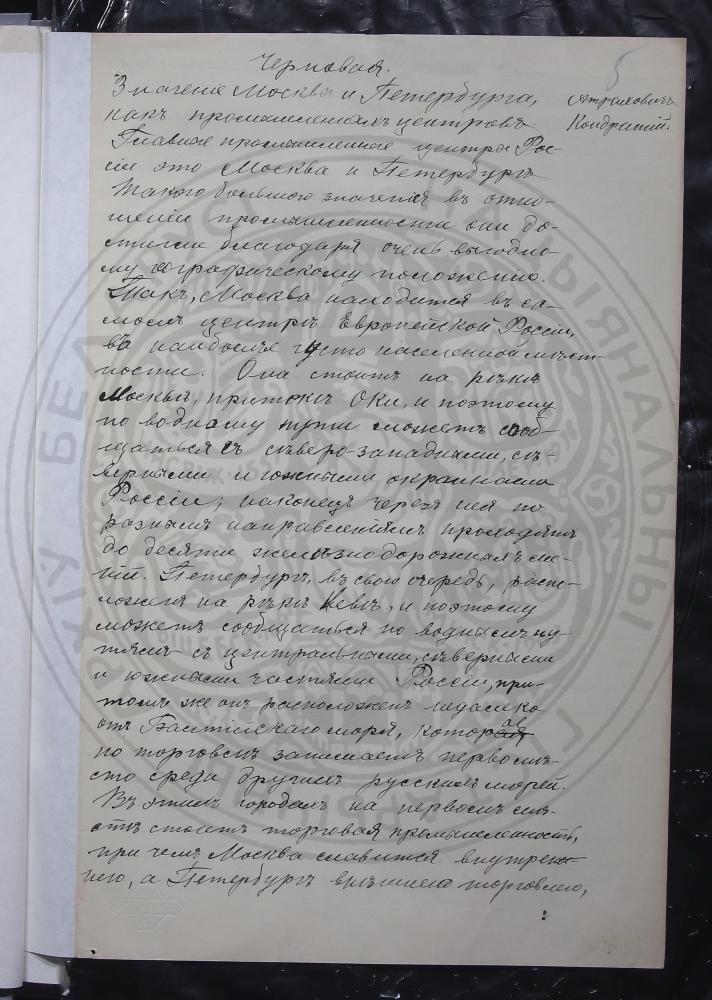 Черновая.
5
Значенiе Москвы и Петербурга,
какъ промышленныхъ центровъ.
Астраховичъ
Кондратiй.
Главные промышленные центры Рос-
сiи это Москва и Петербургъ
Такого большого значенiя въ отно-
шенiи промышленности они до-
стигли благодаря очень выгодно-
му географическому положенiю.
Такъ, Москва находится въ са-
момъ центрѣ Европейской Россiи,
въ наиболѣе густо населенной мѣст-
ности. Она стоитъ на рѣкѣ
Москвѣ, притокѣ Оки, и поэтому
по водному пути можетъ сооб-
щаться съ сѣверо-западными, сѣ-
верными и южными окраинами
Россiи; наконецъ черезъ нея по
разнымъ направленiямъ проходятъ
до десяти желѣзнодорожныхъ ли-
нiй. Петербургъ, въ свою очередь, распо-
ложенъ на рѣкѣ Невѣ, и поэтому
можетъ сообщаться по воднымъ пу-
тямъ съ центральными, сѣверными
и южными частями Россiи, при-
томъ же онъ расположенъ недалеко
отъ Балтiйскаго моря, которое
по торговлѣ занимаетъ первое мѣ-
сто среди другихъ русскихъ морей.
Въ этихъ городахъ на первомъ мѣ-
стѣ стоитъ торговая промышленность,
при чемъ Москва славится внутрен-
нею, а Петербургъ внѣшнею торговлею,